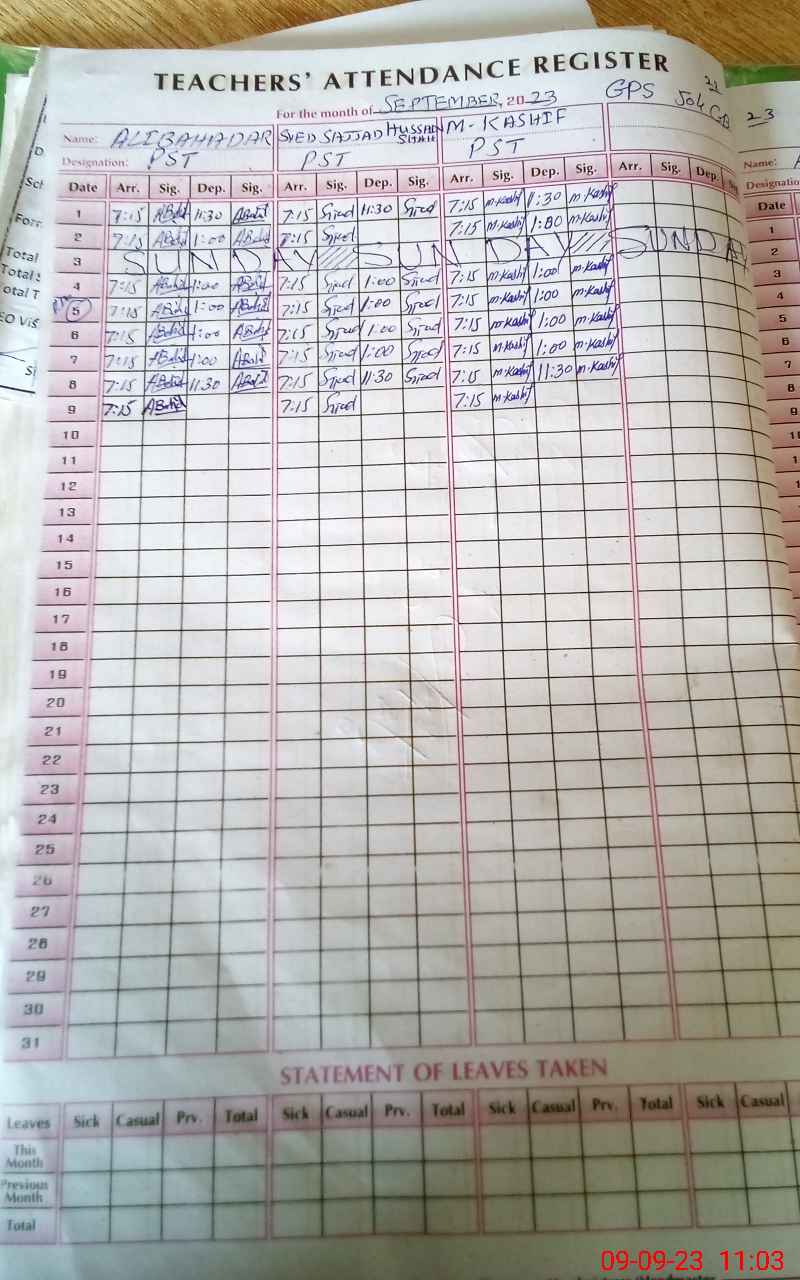 TEACHERS' ATTENDANCE REGISTER
For the month of SEPTEMBER, 2023 GPS
Name: ALIBAHADAR SYED SAJJAD HUSSAIN SHAH M-KASHIF
Designation: PST PST PST
Date Arr. Sig. Dep. Sig. Arr. Sig. Dep. Sig. Arr. Sig. Dep. Sig. Arr. Sig. Dep. Sig
1 7:15 11:30 7:15 11:30 7:15 m-Kashif 11:30 m-Kashif
2 7:15 1:00 7:15 7:15 m-Kashif 1:00 m-Kashif
3 SUNDAY SUNDAY SUNDAY
4 7:15 1:00 7:15 1:00 7:15 m-Kashif 1:00 m-Kashif
5 7:15 1:00 7:15 1:00 7:15 m-Kashif 1:00 m-Kashif
6 7:15 1:00 7:15 1:00 7:15 m-Kashif 1:00 m-Kashif
7 7:15 1:00 7:15 1:00 7:15 m-Kashif 1:00 m-Kashif
8 7:15 11:30 7:15 11:30 7:15 m-Kashif 11:30 m-Kashif
9 7:15 7:15 7:15 m-Kashif
10
11
12
13
14
15
16
17
18
19
20
21
22
23
24
25
26
27
28
29
30
31
STATEMENT OF LEAVES TAKEN
Leaves Sick Casual Prv. Total Sick Casual Prv. Total Sick Casual Prv. Total Sick Casual
This Month
Previous Month
Total
09-09-23 11:03